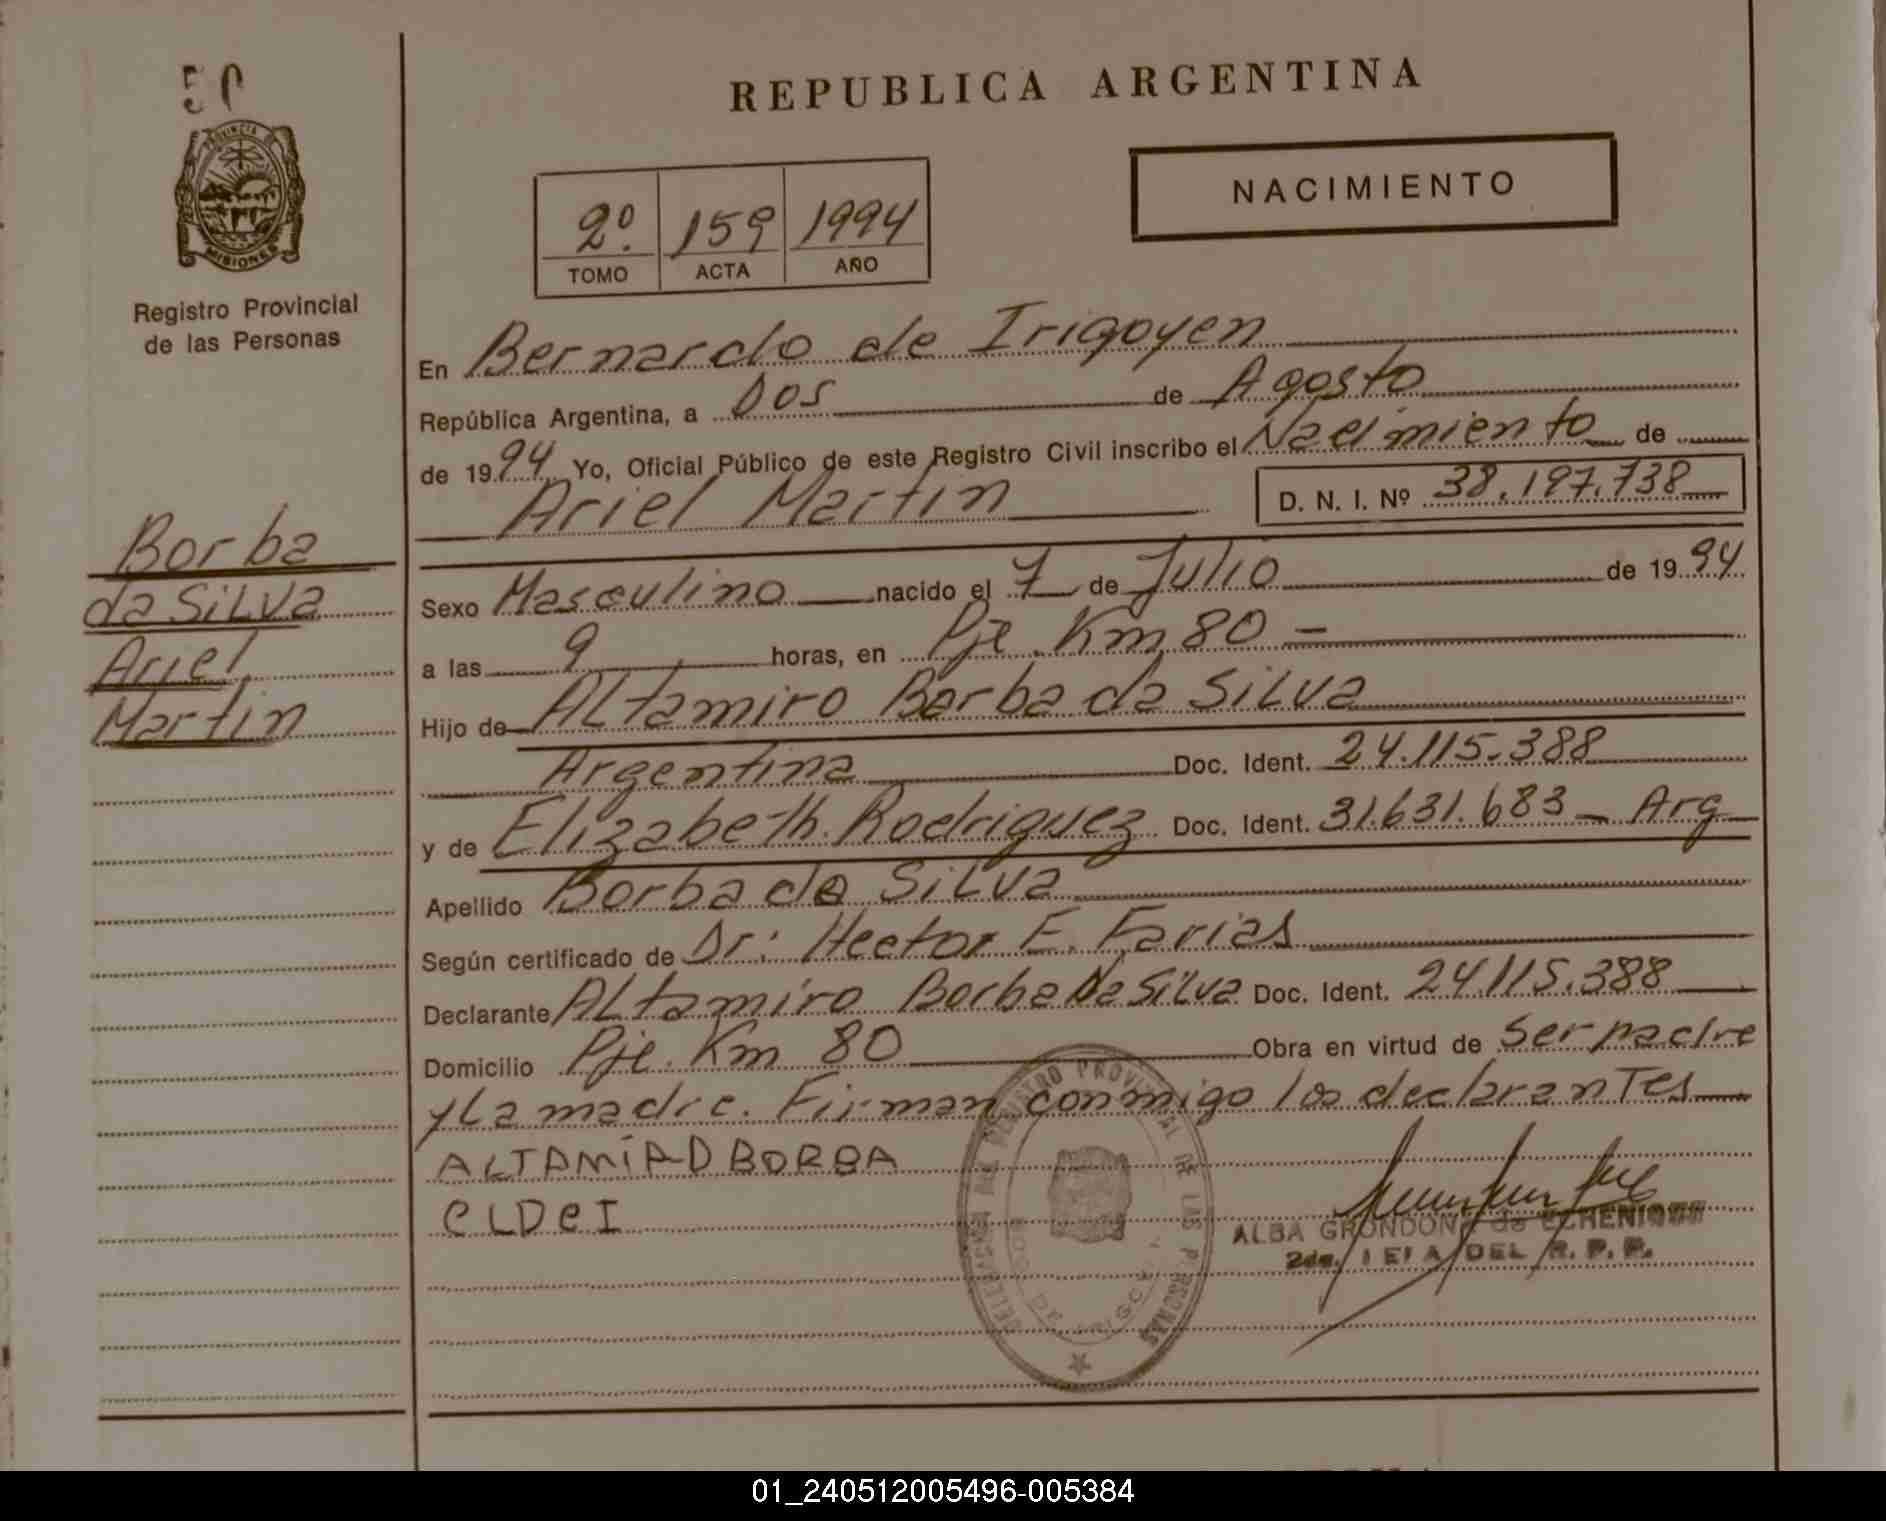 50
REPUBLICA ARGENTINA
PROVINCIA DE
MISIONES
NACIMIENTO
2º. 159 1994
TOMO ACTA AÑO
Registro Provincial
de las Personas
En Bernardo de Irigoyen
República Argentina, a Dos de Agosto
de 1994 Yo, Oficial Público de este Registro Civil inscribo el Nacimiento de
Ariel Martin D. N. I. Nº 38.197.738
Borba
da SiLva
Ariel
Martin
Sexo Masculino nacido el 7 de Julio de 1994
a las 9 horas, en Pje. Km 80 -
Hijo de ALtamiro Borba da SiLva
Argentina Doc. Ident. 24.115.388
y de Elizabeth Rodriguez Doc. Ident. 31.631.683 - Arg
Apellido Borba da SiLva
Según certificado de Dr: Hector E. Farias
Declarante ALtamiro Borba Da SiLva Doc. Ident. 24.115.388
Domicilio Pje. Km 80 Obra en virtud de ser padre
y La madre. Firman conmigo los declarantes
ALTAMIRO BORBA
ELDEI
DELEGACION DEL REGISTRO PROVINCIAL DE LAS PERSONAS
DE IRIGOYEN
ALBA GRONDONA de ECHENIQUE
2da. JEFA DEL R. P. P.
01_240512005496-005384